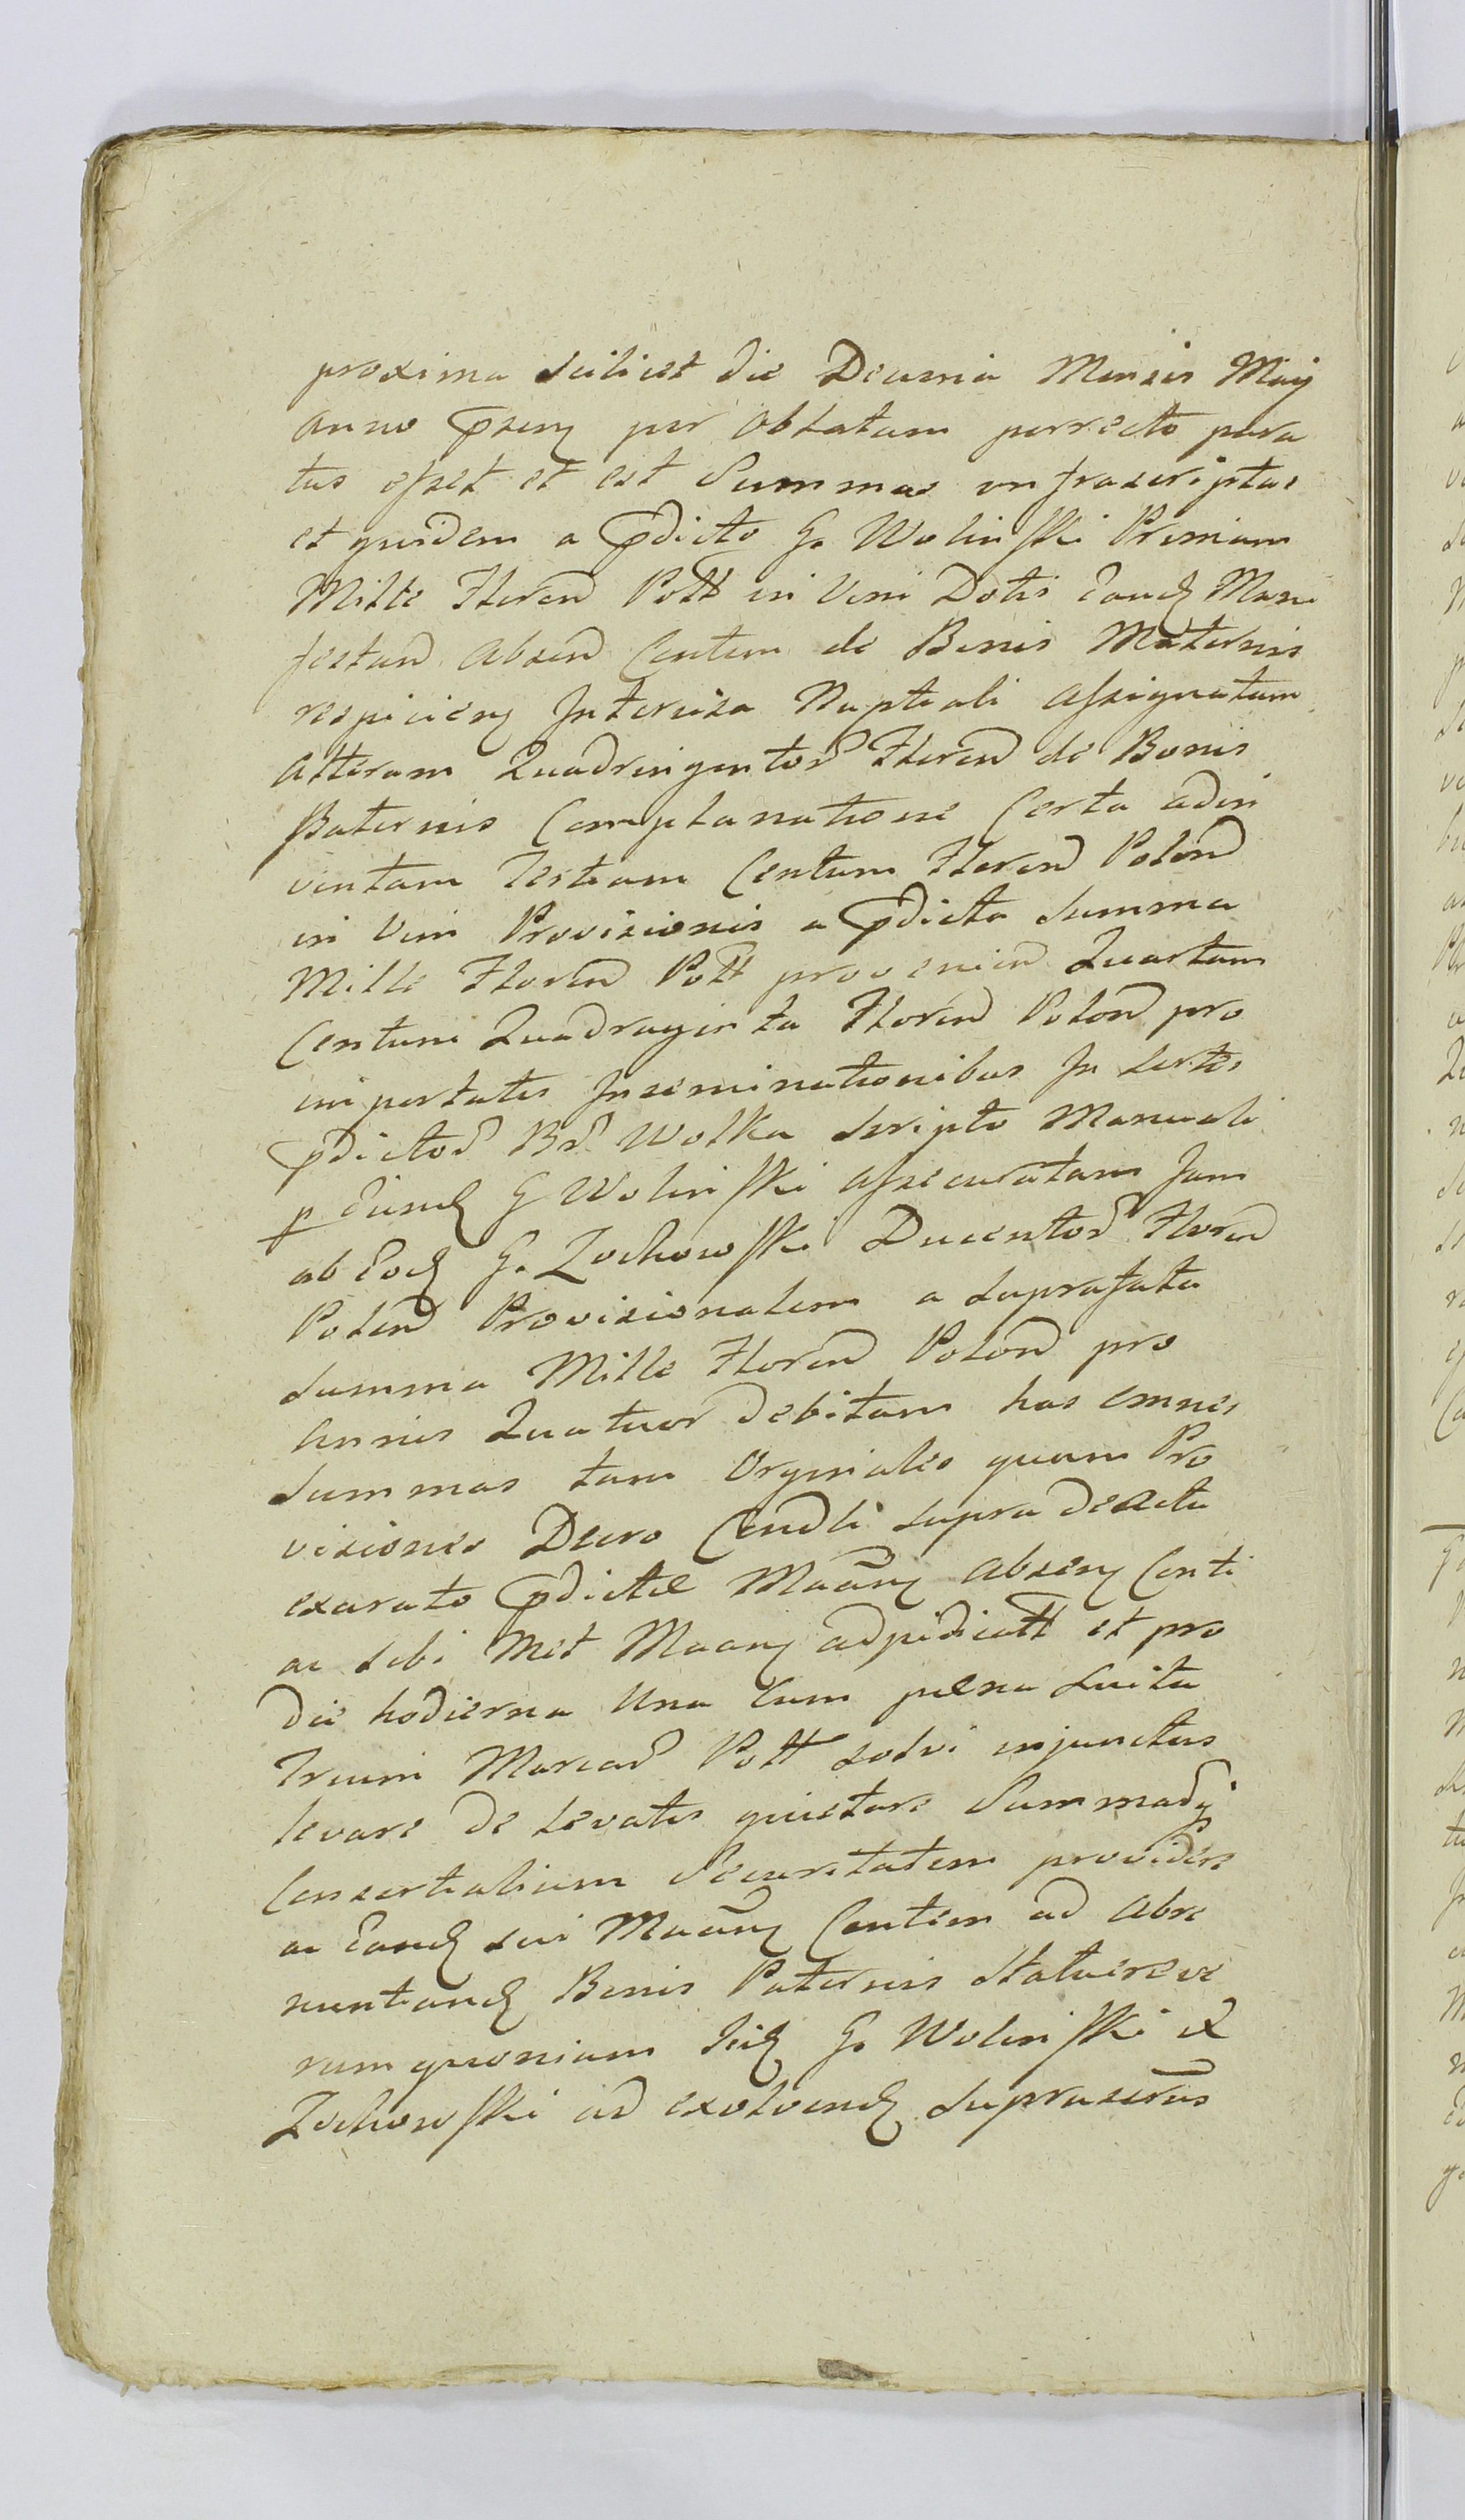 proxima scilicet die Decima Mensis Maij
anno psenȝ per oblatam perrecto para
tus esset et est Summas infrascriptas
et quidem a pdicto G. Wolinski Primam
Mille Floren Poll in Vim Dotis Eandȝ Mani
festand absend Contem de Bonis Maternis
respicienȝ Intercisa Nuptiali assignatam
alteram Quadringentor Floren de Bonis
Paternis Complanatione Certa adin
ventam Tertiam Centum Floren Polon
in Vim Provisionis a pdicta Summa
Mille Floren Poll provenien Quartam
Centum Quadraginta Floren Polon pro
importatis Inseminationibus In Sortes
pdictor Br Wolka Scripto Manuali
p Eundȝ G Wolinski assecuratam Jam
ab Eodȝ G. Zochowski Ducentor Floren
Polon Provisionalem a Suprafata
Summa Mille Floren Polon pro
Annis Quatuor debitam has omnes
Summas tam Orginales quam Pro
visiones Decro Condli supra de Actu
exarato pdictæ Maanȝ absenȝ Conti
ac sibi Met Maanȝ adpidicatt et pro
die hodierna Una Cum pæna Luita
Trium Marcar Poll solvi injunctas
levare de Levatis quietare Summarqȝ
Consortialium Securitatem providere
ac Eandȝ sui Maanȝ Contem ad abre
nuntiandȝ Bonis Paternis Statuere ve
rum quoniam iidȝ G. Wolinski et
Zochowski ad exolvendȝ Suprascrtas